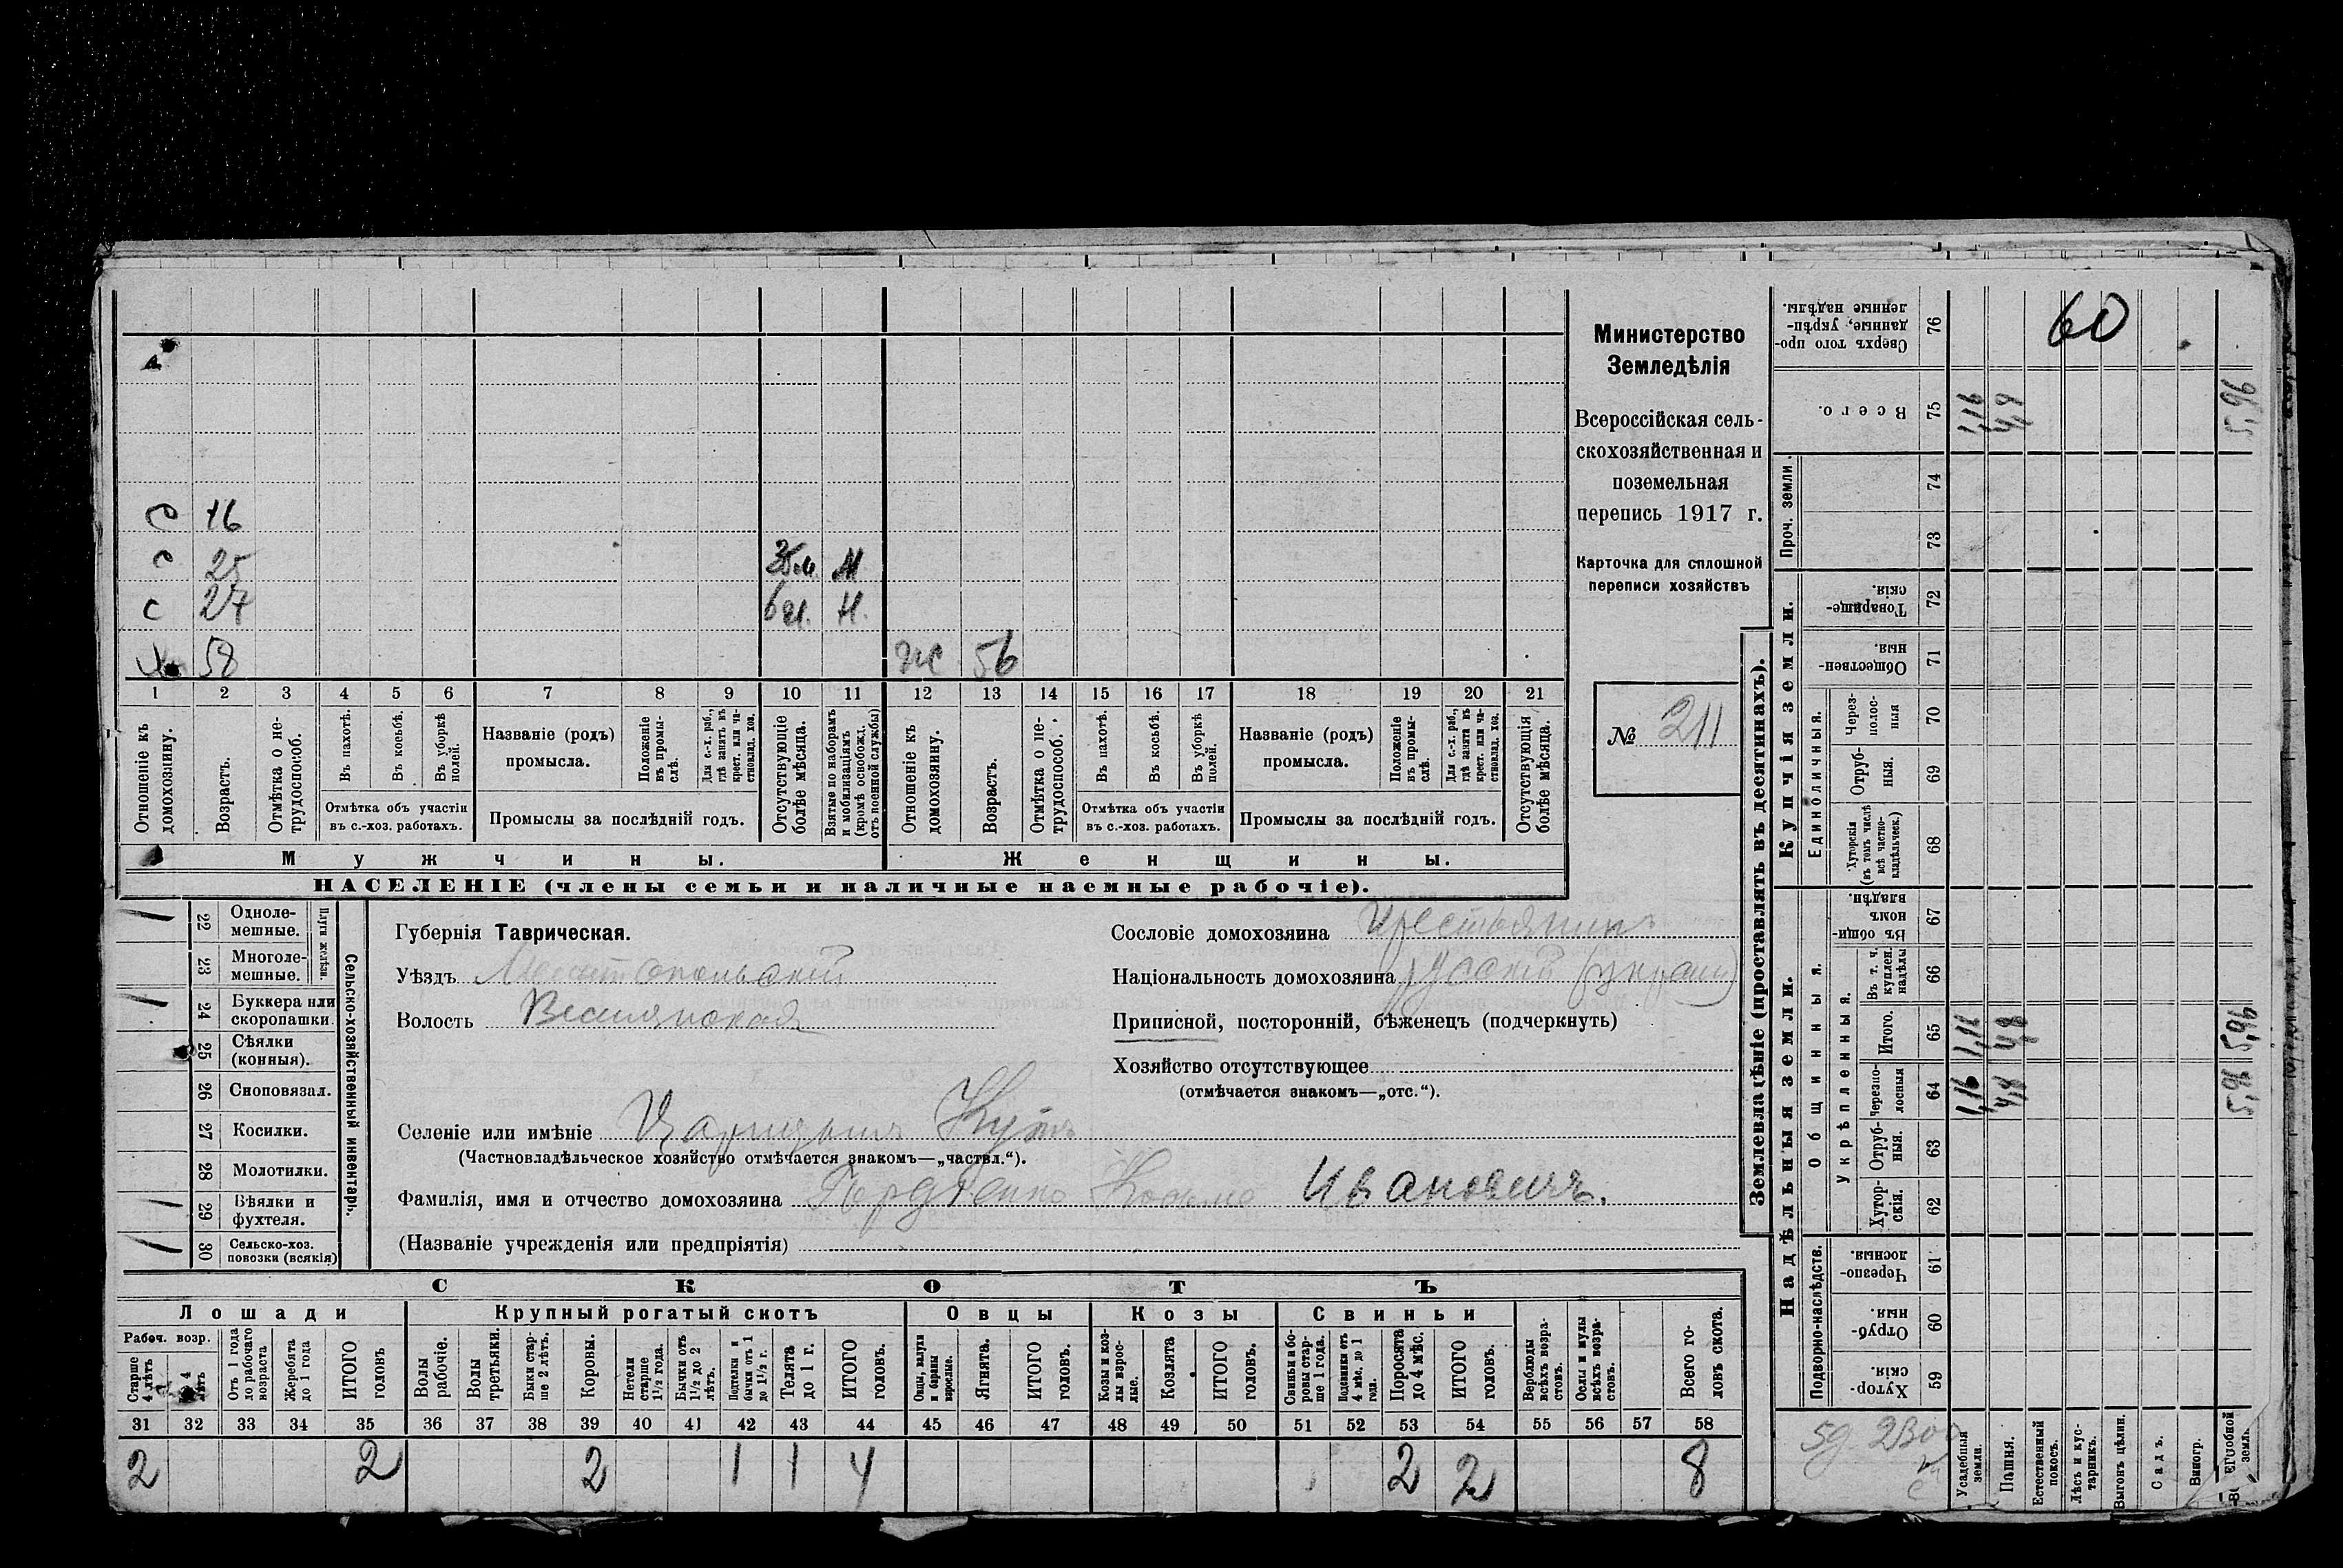 С 16
с 25 м
с 27 6 м. Н.
58 ж 56
1 2 3 4 5 6 7 8 9 10 11 12 13 14 15 16 17 18 19 20 21
Отношеніе къ домохозяину.
Возрастъ.
Отмѣтка о не-трудоспособ.
Въ пахотѣ.
Въ косьбѣ.
Въ уборкѣ полей.
Отмѣтка объ участіи
въ с.-хоз. работахъ.
Названіе (родъ)
промысла.
Положеніе въ промы-слѣ.
Для с.-х. раб., гдѣ занятъ въ крест. или ча-стновлад. хоз.
Промыслы за послѣдній годъ.
Отсутствующіе болѣе мѣсяца.
Взятые по наборамъ и мобилизаціямъ (кромѣ освобожд. отъ военной службы)
Отношеніе къ домохозяину.
Возрастъ.
Отмѣтка о не-трудоспособ.
Въ пахотѣ.
Въ косьбѣ.
Въ уборкѣ полей.
Отмѣтка объ участіи
въ с.-хоз. работахъ.
Названіе (родъ)
промысла.
Положеніе въ промы-слѣ.
Для с.-х. раб., гдѣ занята въ крест. или ча-стновлад. хоз.
Промыслы за послѣдній годъ.
Отсутствующія болѣе мѣсяца.
Мужчины.
Женщины.
НАСЕЛЕНІЕ (члены семьи и наличные наемные рабочіе).
Министерство
Земледѣлія
Всероссійская сель-
скохозяйственная и
поземельная
перепись 1917 г.
Карточка для сплошной
переписи хозяйствъ
№ 211
22 Одноле-мешные.
23 Многоле-мешные.
Плуги желѣзн.
24 Буккера или скоропашки.
25 Сѣялки (конныя).
26 Сноповязал.
27 Косилки.
28 Молотилки.
29 Вѣялки и фухтеля.
30 Сельско-хоз. повозки (всякія)
Сельско-хозяйственный инвентарь.
Губернія Таврическая.
Уѣздъ Мелитопольскій
Волость Веселянская
Селеніе или имѣніе Царицынъ Кутъ
(Частновладѣльческое хозяйство отмѣчается знакомъ—„частвл.“).
Фамилія, имя и отчество домохозяина Козьма Ивановичъ.
(Названіе учрежденія или предпріятія)
Сословіе домохозяина Крестьянинъ
Національность домохозяина русскій (украин)
Приписной, посторонній, бѣженецъ (подчеркнуть)
Хозяйство отсутствующее
(отмѣчается знакомъ—„отс.“).
СКОТЪ
Лошади
Крупный рогатый скотъ
Овцы
Козы
Свиньи
Рабоч. возр.
Старше 4 лѣтъ
4 лѣтъ
Отъ 1 года до рабочаго возраста
Жеребята до 1 года
ИТОГО головъ
Волы рабочіе.
Волы третьяки.
Быки стар-ше 2 лѣтъ.
Коровы.
Нетели старше 1½ года.
Бычки отъ 1½ до 2 лѣтъ.
Подтелки и бычки отъ 1 до 1½ г.
Телята до 1 г.
ИТОГО головъ.
Овцы, валухи и бараны взрослые.
Ягнята.
ИТОГО головъ.
Козы и коз-лы взрос-лые.
Козлята
ИТОГО головъ.
Свиньи и бо-ровы стар-ше 1 года.
Подсвинки отъ 4 мѣс. до 1 года.
Поросята до 4 мѣс.
ИТОГО головъ.
Верблюды всѣхъ возра-стовъ.
Ослы и мулы всѣхъ возра-стовъ.
Всего го-ловъ скота.
31 32 33 34 35 36 37 38 39 40 41 42 43 44 45 46 47 48 49 50 51 52 53 54 55 56 57 58
2 2 2 1 1 4 2 2 8
Землевладѣніе (проставлять въ десятинахъ).
60
Сверхъ того про-данные, укрѣп-ленные надѣлы. 76
Всего. 75 1,16 4,8 5,96
Проч. земли. 74
73
Купчія земли.
Товарище-скія. 72
Обществен-ныя. 71
Единоличныя.
Через-полос-ныя 70
Отруб-ныя. 69
Хуторскія (въ томъ числѣ всѣ частно-владѣльческ.) 68
Надѣльныя земли.
Общинныя.
Въ общин-номъ владѣн. 67
Укрѣпленныя.
Въ т. ч. куплен. надѣлы 66
Итого. 65 1,16 4,8 5,96
Черезпо-лосныя 64 1,16 4,8 5,96
Отруб-ныя. 63
Хутор-скія. 62
Подворно-наслѣдств.
Черезпо-лосныя. 61
Отруб-ныя. 60
Хутор-скія. 59
Усадебныя земли.
Пашня.
Естественный покосъ.
Лѣсъ и кус-тарникъ.
Выгонъ цѣлин.
Садъ.
Виногр.